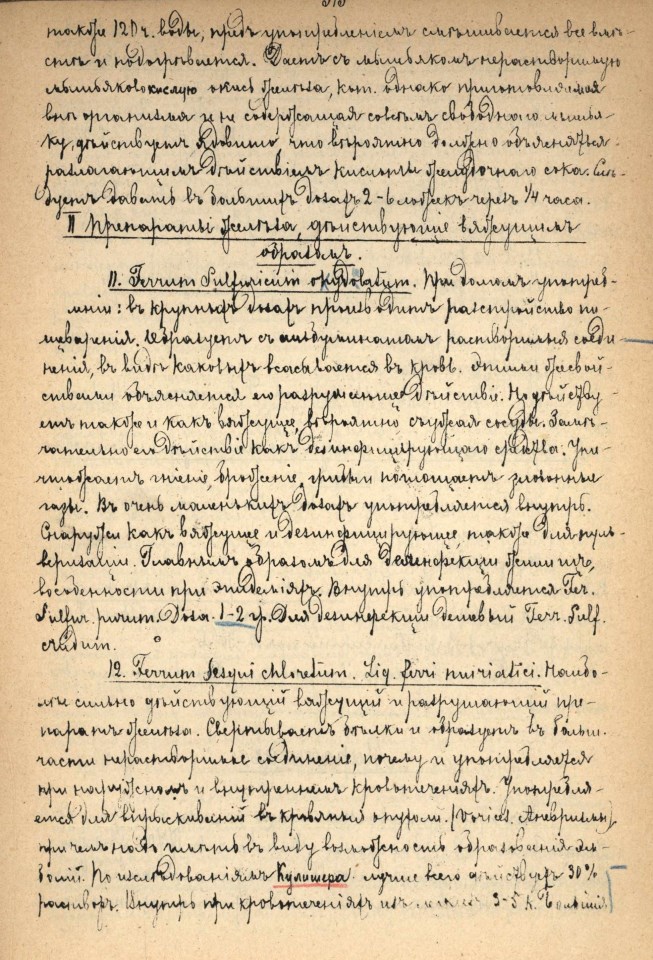 также 120 ч. воды, предъ употребленіемъ смѣшивается все вмѣ-
стѣ и подогрѣвается. Даетъ съ мышьякомъ нерастворимую
мышьяковокислую окись желѣза, кот. однако приготовляемая
внѣ организма и не содержащая совсѣмъ свободнаго мышья-
ку, дѣйствуетъ ядовито, что вѣроятно должно объясняться
разлагающимъ дѣйствіемъ кислоты желудочнаго сока. Слѣ-
дуетъ давать въ большихъ дозахъ 2-6 ложекъ черезъ 1/4 часа.
II Препараты желѣза, дѣйствующіе вяжущимъ
образомъ.
11. Ferrum Sulfuricum oxydulatum. При долгомъ употреб-
леніи: въ крупныхъ дозахъ производитъ разстройство пи-
щеваренія. Образуетъ съ альбуминатами растворимыя соеди-
ненія, въ видѣ каковыхъ всасывается въ кровь. Этими же свой-
ствами объясняется его разрушающее дѣйствіе. Но дѣйству-
етъ также и какъ вяжущее, вѣроятно съуживая сосуды. Замѣ-
чательно его дѣйствіе какъ дезинфицирующаго средства. Уни-
чтожаетъ гніеніе, броженіе, грибки и поглощаетъ зловонные
газы. Въ очень маленькихъ дозахъ употребляется внутрь.
Снаружи какъ вяжущее и дезинфицирующее, также для пуль-
веризаціи. Главнымъ образомъ для дезинфекціи
въ особенности при эпидеміяхъ. Внутрь употребляется Fer.
Sulfur. purum. Dosa. 1-2 gr. Для дезинфекціи дешевый Ferr. Sulf.
crudum.
12. Ferrum sesqui chloratum. Liq. ferri muriatici. Наибо-
лѣе сильно дѣйствующій вяжущій и разрушающій пре-
паратъ желѣза. Свертываетъ бѣлки и образуетъ въ больш.
части нерастворимое соединеніе, почему и употребляется
при наружномъ и внутреннемъ кровотеченіяхъ. Употребля-
ется для впрыскиваній въ кровяныя опухоли. (Varices. Аневризмы),
при чемъ надо имѣть въ виду возможность образованія эм-
боліи. По изслѣдованіямъ Кулишера лучше всего дѣйствуетъ 30%
растворъ. Внутрь при кровотеченіяхъ изъ 3-5 к.